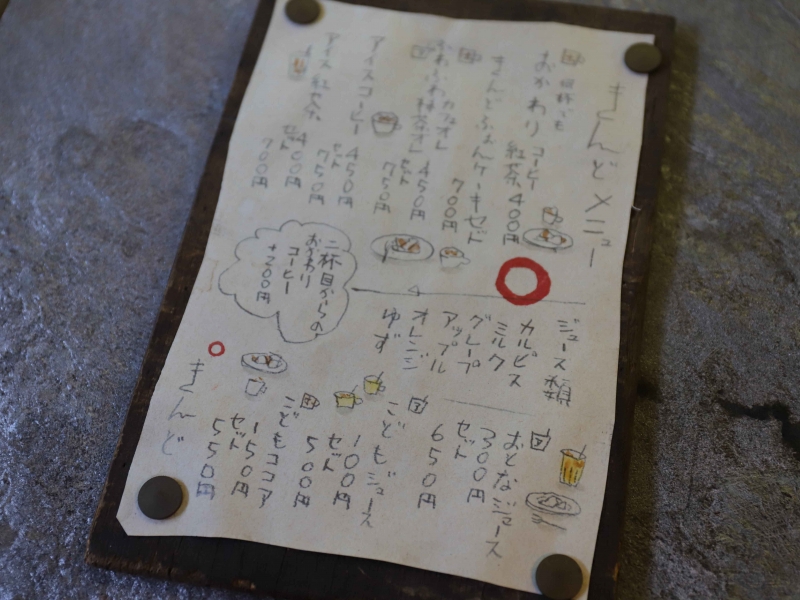 きんどメニュー
何杯でも
おかわりコーヒー
紅茶400円
きんどふぁんケーキセット
700円
カフェオレ
ふわふわ抹茶オレ 450円
セット 750円
アイスコーヒー 450円
セット 750円
アイス紅茶 400円
セット 700円
二杯目からの
おかわり
コーヒー
+200円
ジュース類
カルピス
ミルク
グレープ
アップル
オレンジ
ゆず
おとなジュース
300円
セット
650円
こどもジュース
100円
セット
500円
こどもココア
150円
セット
550円
きんど